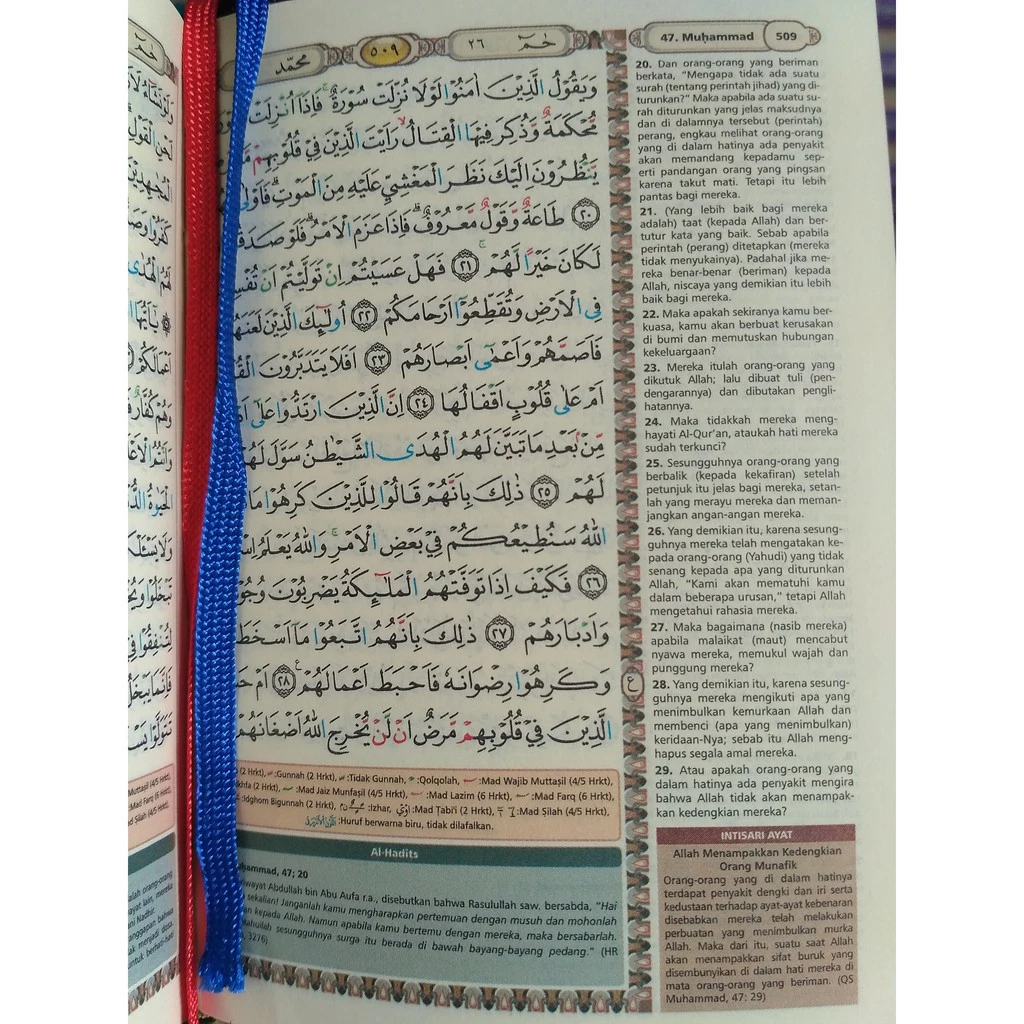 محمّد
٥٠٩
حٰمٓ ٢٦
47. Muḥammad 509
وَيَقُوْلُ الَّذِيْنَ اٰمَنُوْا لَوْلَا نُزِّلَتْ سُوْرَةٌ ۚ فَاِذَآ اُنْزِلَتْ
مُّحْكَمَةٌ وَّذُكِرَ فِيْهَا الْقِتَالُ ۙ رَاَيْتَ الَّذِيْنَ فِيْ قُلُوْبِهِمْ
يَّنْظُرُوْنَ اِلَيْكَ نَظَرَ الْمَغْشِيِّ عَلَيْهِ مِنَ الْمَوْتِ ۗ فَاَوْلٰى
٢٠ طَاعَةٌ وَّقَوْلٌ مَّعْرُوْفٌ ۗ فَاِذَا عَزَمَ الْاَمْرُ ۗ فَلَوْ صَدَقُوا
لَكَانَ خَيْرًا لَّهُمْ ۚ ٢١ فَهَلْ عَسَيْتُمْ اِنْ تَوَلَّيْتُمْ اَنْ
فِى الْاَرْضِ وَتُقَطِّعُوْٓا اَرْحَامَكُمْ ٢٢ اُولٰۤىِٕكَ الَّذِيْنَ لَعَنَهُمُ
فَاَصَمَّهُمْ وَاَعْمٰٓى اَبْصَارَهُمْ ٢٣ اَفَلَا يَتَدَبَّرُوْنَ
اَمْ عَلٰى قُلُوْبٍ اَقْفَالُهَا ٢٤ اِنَّ الَّذِيْنَ ارْتَدُّوْا عَلٰٓى
مِّنْۢ بَعْدِ مَا تَبَيَّنَ لَهُمُ الْهُدَى الشَّيْطٰنُ سَوَّلَ لَهُمْ
لَهُمْ ٢٥ ذٰلِكَ بِاَنَّهُمْ قَالُوْا لِلَّذِيْنَ كَرِهُوْا مَا
اللّٰهُ سَنُطِيْعُكُمْ فِيْ بَعْضِ الْاَمْرِ ۚ وَاللّٰهُ يَعْلَمُ
٢٦ فَكَيْفَ اِذَا تَوَفَّتْهُمُ الْمَلٰۤىِٕكَةُ يَضْرِبُوْنَ
وَاَدْبَارَهُمْ ٢٧ ذٰلِكَ بِاَنَّهُمُ اتَّبَعُوْا مَآ اَسْخَطَ
وَكَرِهُوْا رِضْوَانَهٗ فَاَحْبَطَ اَعْمَالَهُمْ ࣖ ٢٨ اَمْ
الَّذِيْنَ فِيْ قُلُوْبِهِمْ مَّرَضٌ اَنْ لَّنْ يُّخْرِجَ اللّٰهُ اَضْغَانَهُمْ
ع
20. Dan orang-orang yang beriman
berkata, "Mengapa tidak ada suatu
surah (tentang perintah jihad) yang di-
turunkan?" Maka apabila ada suatu su-
rah diturunkan yang jelas maksudnya
dan di dalamnya tersebut (perintah)
perang, engkau melihat orang-orang
yang di dalam hatinya ada penyakit
akan memandang kepadamu sep-
erti pandangan orang yang pingsan
karena takut mati. Tetapi itu lebih
pantas bagi mereka.
21. (Yang lebih baik bagi mereka
adalah) taat (kepada Allah) dan ber-
tutur kata yang baik. Sebab apabila
perintah (perang) ditetapkan (mereka
tidak menyukainya). Padahal jika me-
reka benar-benar (beriman) kepada
Allah, niscaya yang demikian itu lebih
baik bagi mereka.
22. Maka apakah sekiranya kamu ber-
kuasa, kamu akan berbuat kerusakan
di bumi dan memutuskan hubungan
kekeluargaan?
23. Mereka itulah orang-orang yang
dikutuk Allah; lalu dibuat tuli (pen-
dengarannya) dan dibutakan pengli-
hatannya.
24. Maka tidakkah mereka meng-
hayati Al-Qur'an, ataukah hati mereka
sudah terkunci?
25. Sesungguhnya orang-orang yang
berbalik (kepada kekafiran) setelah
petunjuk itu jelas bagi mereka, setan-
lah yang merayu mereka dan meman-
jangkan angan-angan mereka.
26. Yang demikian itu, karena sesung-
guhnya mereka telah mengatakan ke-
pada orang-orang (Yahudi) yang tidak
senang kepada apa yang diturunkan
Allah, "Kami akan mematuhi kamu
dalam beberapa urusan," tetapi Allah
mengetahui rahasia mereka.
27. Maka bagaimana (nasib mereka)
apabila malaikat (maut) mencabut
nyawa mereka, memukul wajah dan
punggung mereka?
28. Yang demikian itu, karena sesung-
guhnya mereka mengikuti apa yang
menimbulkan kemurkaan Allah dan
membenci (apa yang menimbulkan)
keridaan-Nya; sebab itu Allah meng-
hapus segala amal mereka.
29. Atau apakah orang-orang yang
dalam hatinya ada penyakit mengira
bahwa Allah tidak akan menampak-
kan kedengkian mereka?
INTISARI AYAT
Allah Menampakkan Kedengkian
Orang Munafik
Orang-orang yang di dalam hatinya
terdapat penyakit dengki dan iri serta
kedustaan terhadap ayat-ayat kebenaran
disebabkan mereka telah melakukan
perbuatan yang menimbulkan murka
Allah. Maka dari itu, suatu saat Allah
akan menampakkan sifat buruk yang
disembunyikan di dalam hati mereka di
mata orang-orang yang beriman. (QS
Muhammad, 47: 29)
(2 Hrkt), :Gunnah (2 Hrkt), :Tidak Gunnah, :Qolqolah, :Mad Wajib Muttasil (4/5 Hrkt),
(2 Hrkt), :Mad Jaiz Munfaṣil (4/5 Hrkt), :Mad Lazim (6 Hrkt), :Mad Farq (6 Hrkt),
:Idghom Bigunnah (2 Hrkt), :Izhar, :Mad Ṭabi'i (2 Hrkt), :Mad Ṣilah (4/5 Hrkt),
:Huruf berwarna biru, tidak dilafalkan.
Al-Hadits
47; 20
Abdullah bin Abu Aufa r.a., disebutkan bahwa Rasulullah saw, bersabda, "Hai
sekalian! Janganlah kamu mengharapkan pertemuan dengan musuh dan mohonlah
kepada Allah. Namun apabila kamu bertemu dengan mereka, maka bersabarlah.
sesungguhnya surga itu berada di bawah bayang-bayang pedang." (HR
3276)